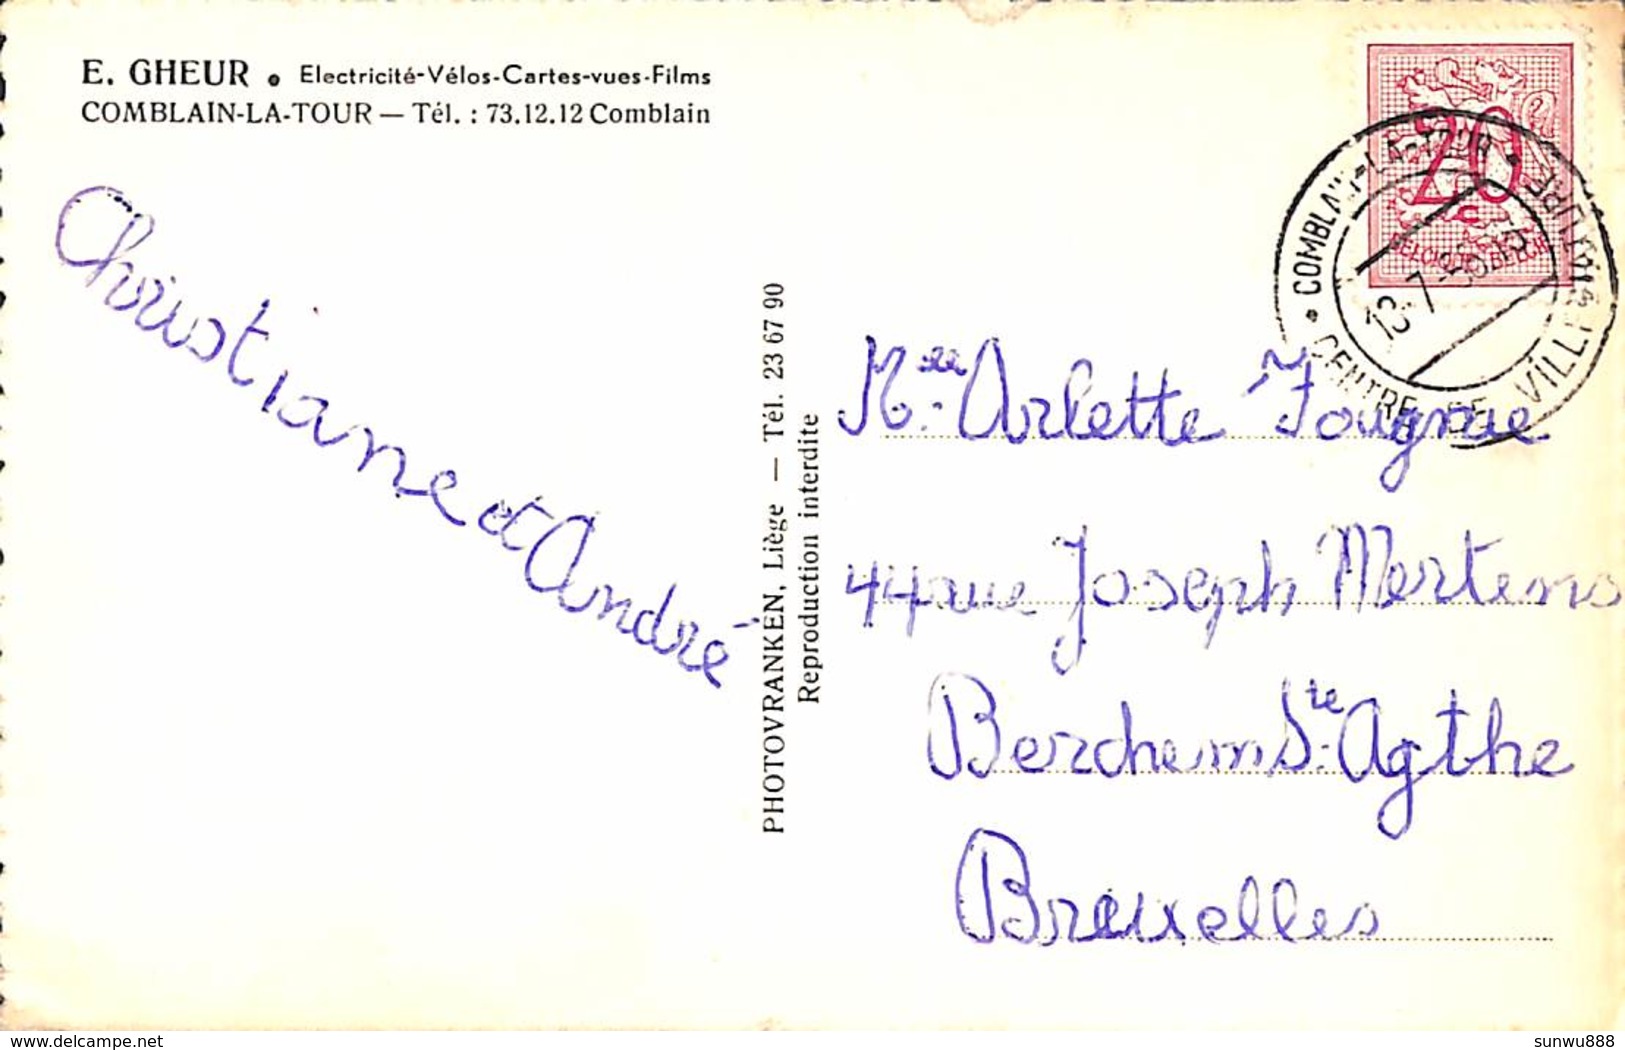 E. GHEUR • Electricité-Vélos-Cartes-vues-Films
COMBLAIN-LA-TOUR — Tél. : 73.12.12 Comblain
Christiane et André
PHOTOVRANKEN, Liège — Tél. 23 67 90
Reproduction interdite
20c
BELGIQUE BELGIË
• COMBLAIN-LA-TOUR •
CENTRE DE VILLÉGIATURE
13-7-56
Melle Arlette
44 rue Joseph Mertens
Berchem Ste Agthe
Bruxelles
delcampe.net
sunwu888